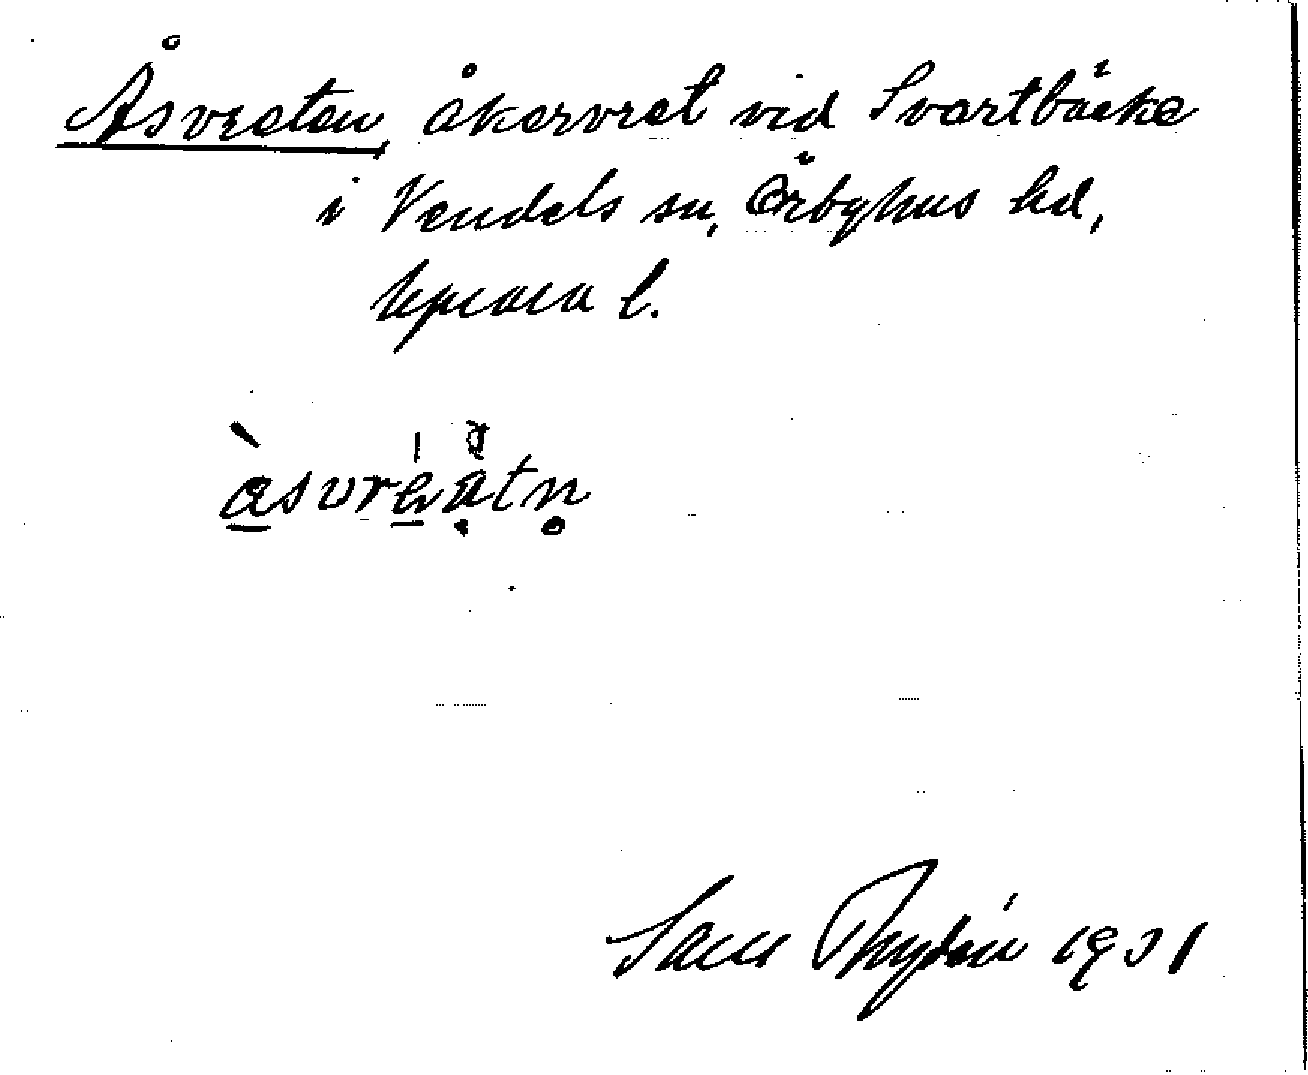 Åsvreten, åkervret vid Svartbäcke
i Vendels sn, Örbyhus hd,
Uppsala l.
åsvrèätn
1931